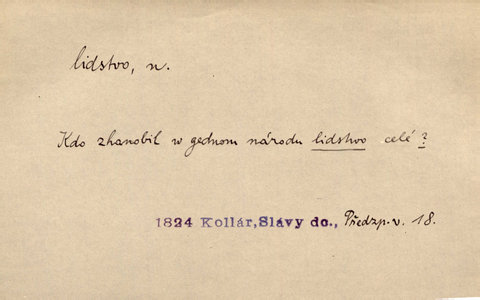 lidstvo, n.
Kdo zhanobil w gednom národu lidstvo celé?
1824 Kollár,Slávy dc., Předzp. v. 18.